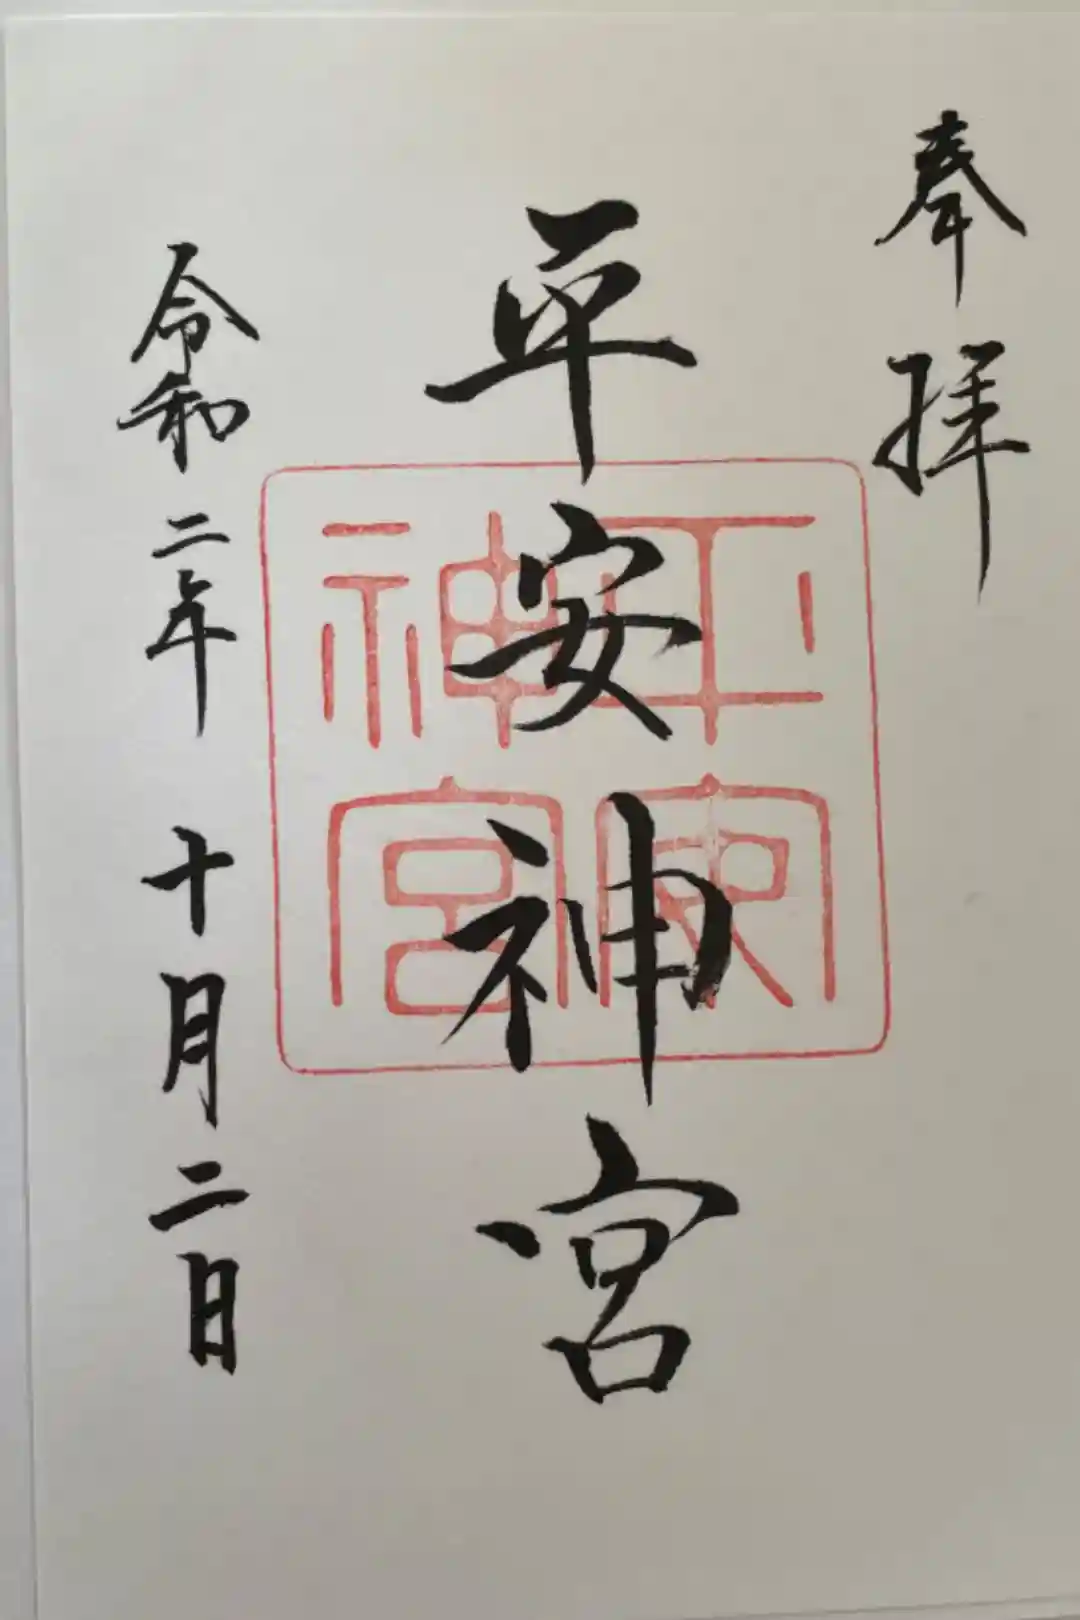 奉拝
平安神宮
平安神宮
令和二年十月二日